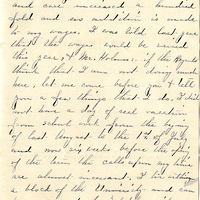 and even increased a hundred
fold and no addition is made
to my wages. I was told last year
that the wages would be raised
this year, & Mr. Holmes. if the Regents
think that I am not doing much
here, let me come before you & tell
you a few things that I do. I did
not have a day of real vacation
from school and from the
of last August to the 1st of July
and now six weeks before the
of the term the calls upon my time
are almost incessant. I live within
a block of the University and can